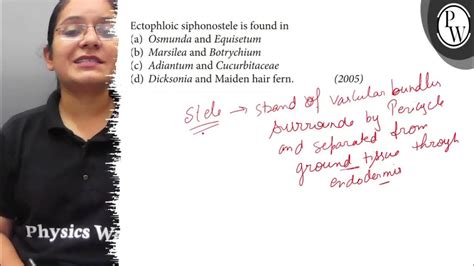 Ectophloic siphonostele is found in
(a) Osmunda and Equisetum
(b) Marsilea and Botrychium
(c) Adiantum and Cucurbitaceae
(d) Dicksonia and Maiden hair fern. (2005)
Stele → strand of vascular bundles
surrounde by Pericycle
and separated from
ground tissue through
endodermis
Physics W
P
W